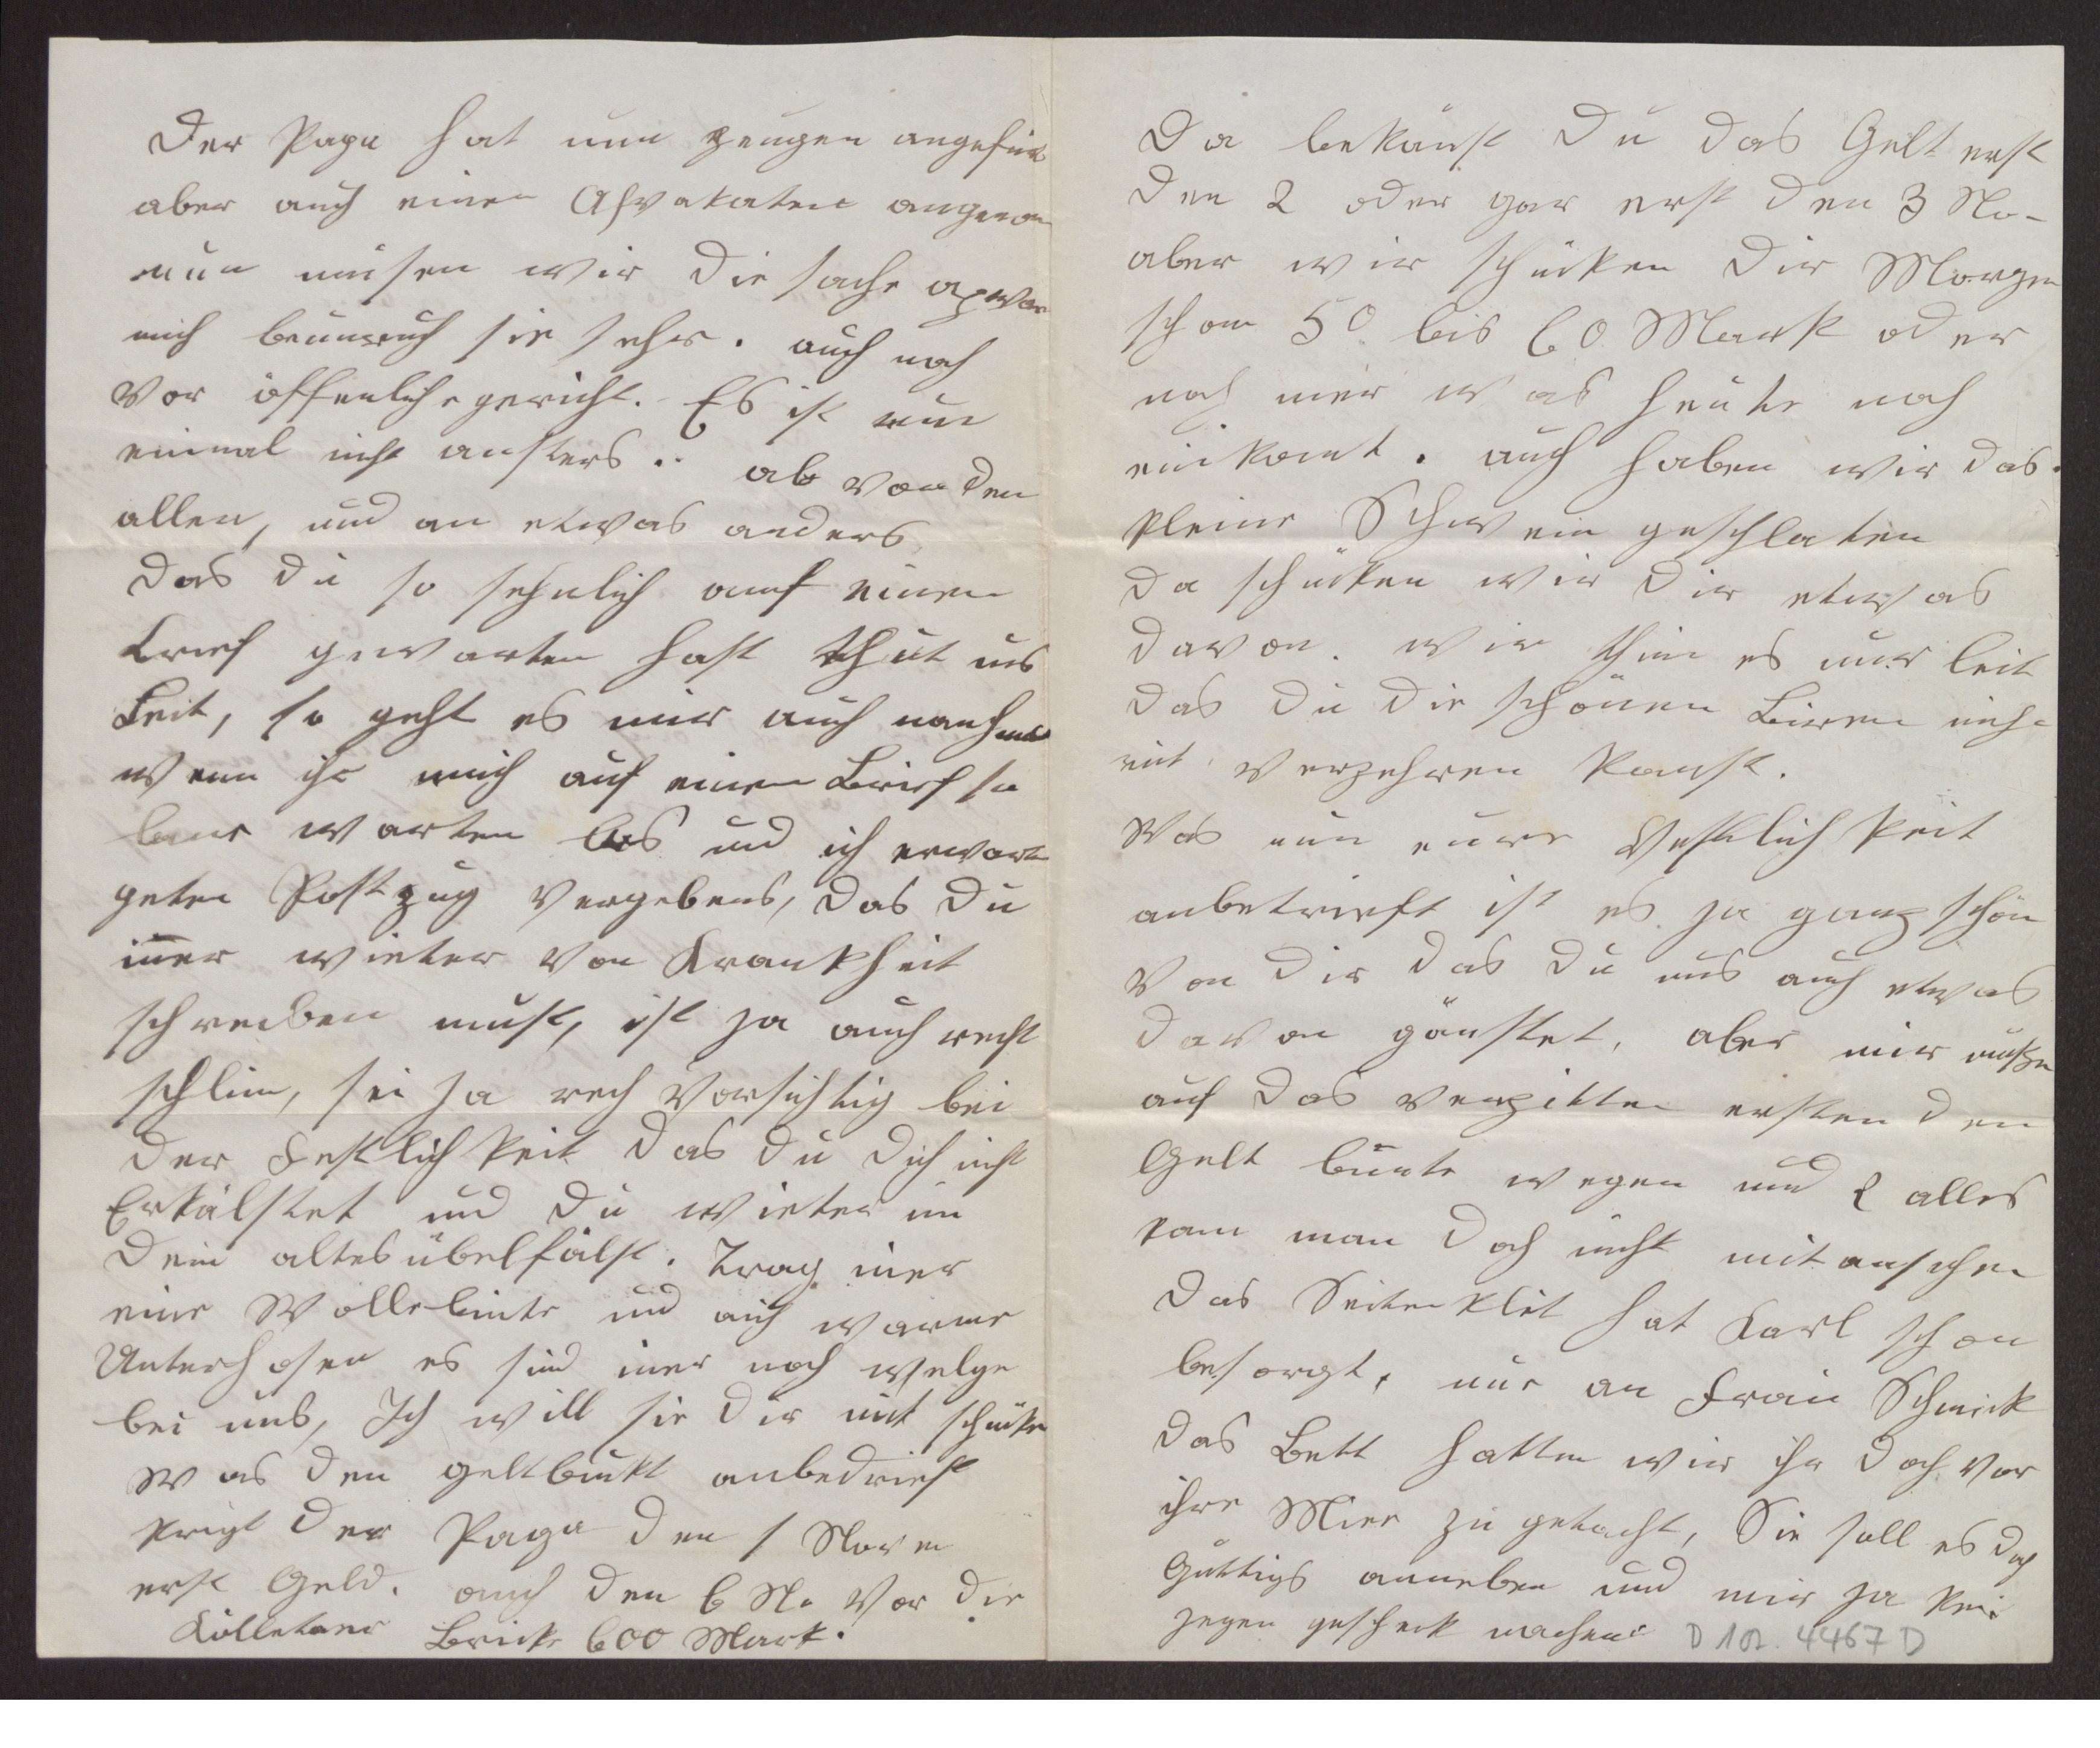 Der Papa hat nun zeugen angefürt
aber auch einen Advakaten angenom
nun müsen wir die sache apwar
mich beunruch sie sehr. auch noch
vor öffenlich gericht. Es ist nun
einmal nicht ansters.. ab von den
allen, und an etwas anders
das du so sehnlich auf einen
Brief gewarten hast thut uns
Leit, so geht es mir auch manchmal
wenn ihr mich auf einen Brief so
lane warten las und ich erwart
geten Postzug vergebens, das du
imer wieter von Krankheit
schreiben must, ist ja auch recht
schlim, sei ja rech vorsichtig bei
der Festlichkeit das du dich nicht
Erkälstet und du wieter in
dein altes übelfälst. Trag imer
eine Wollebinte und auch warme
Unterhosen es sind imer noch welge
bei uns, Ich will sie dir mit schücken
Was den geltbunkt anbedrieft
krigt der Papa den 1 Novem
erst Geld. auch den 6 No vor die
Külletaer Brücke 600 Mark.
Da bekünst du das Gelt erst
den 2 oder gar erst den 3 No-
aber wir schücken dir Morgen
schon 50 bis 60 Mark oder
noch mer was heute noch
einkomt. auch haben wir das
kleine Schwein geschlaten
da schücken wir dir etwas
davon. wir thun es nur leit
das du die schönen Biren nich
mit verzehren kanst.
Was nun eure Vestlichkeit
anbetrieft ist es ja ganz schön
von dir das du uns auch etwas
davon gönstet, aber mir müßen
auf das verzitten ersten den
Gelt bunte wegen und 2 alles
kann man doch nicht mit ansehen
Das Seitenkleit hat Karl schon
besorgt, nur an Frau Schmick
das Bett hatten wir ihr doch vor
ihre Mier zu getacht, Sie soll es doch
güttigs anneben und mir ja kein
gegen gescheck machen
D 102. 4467 D